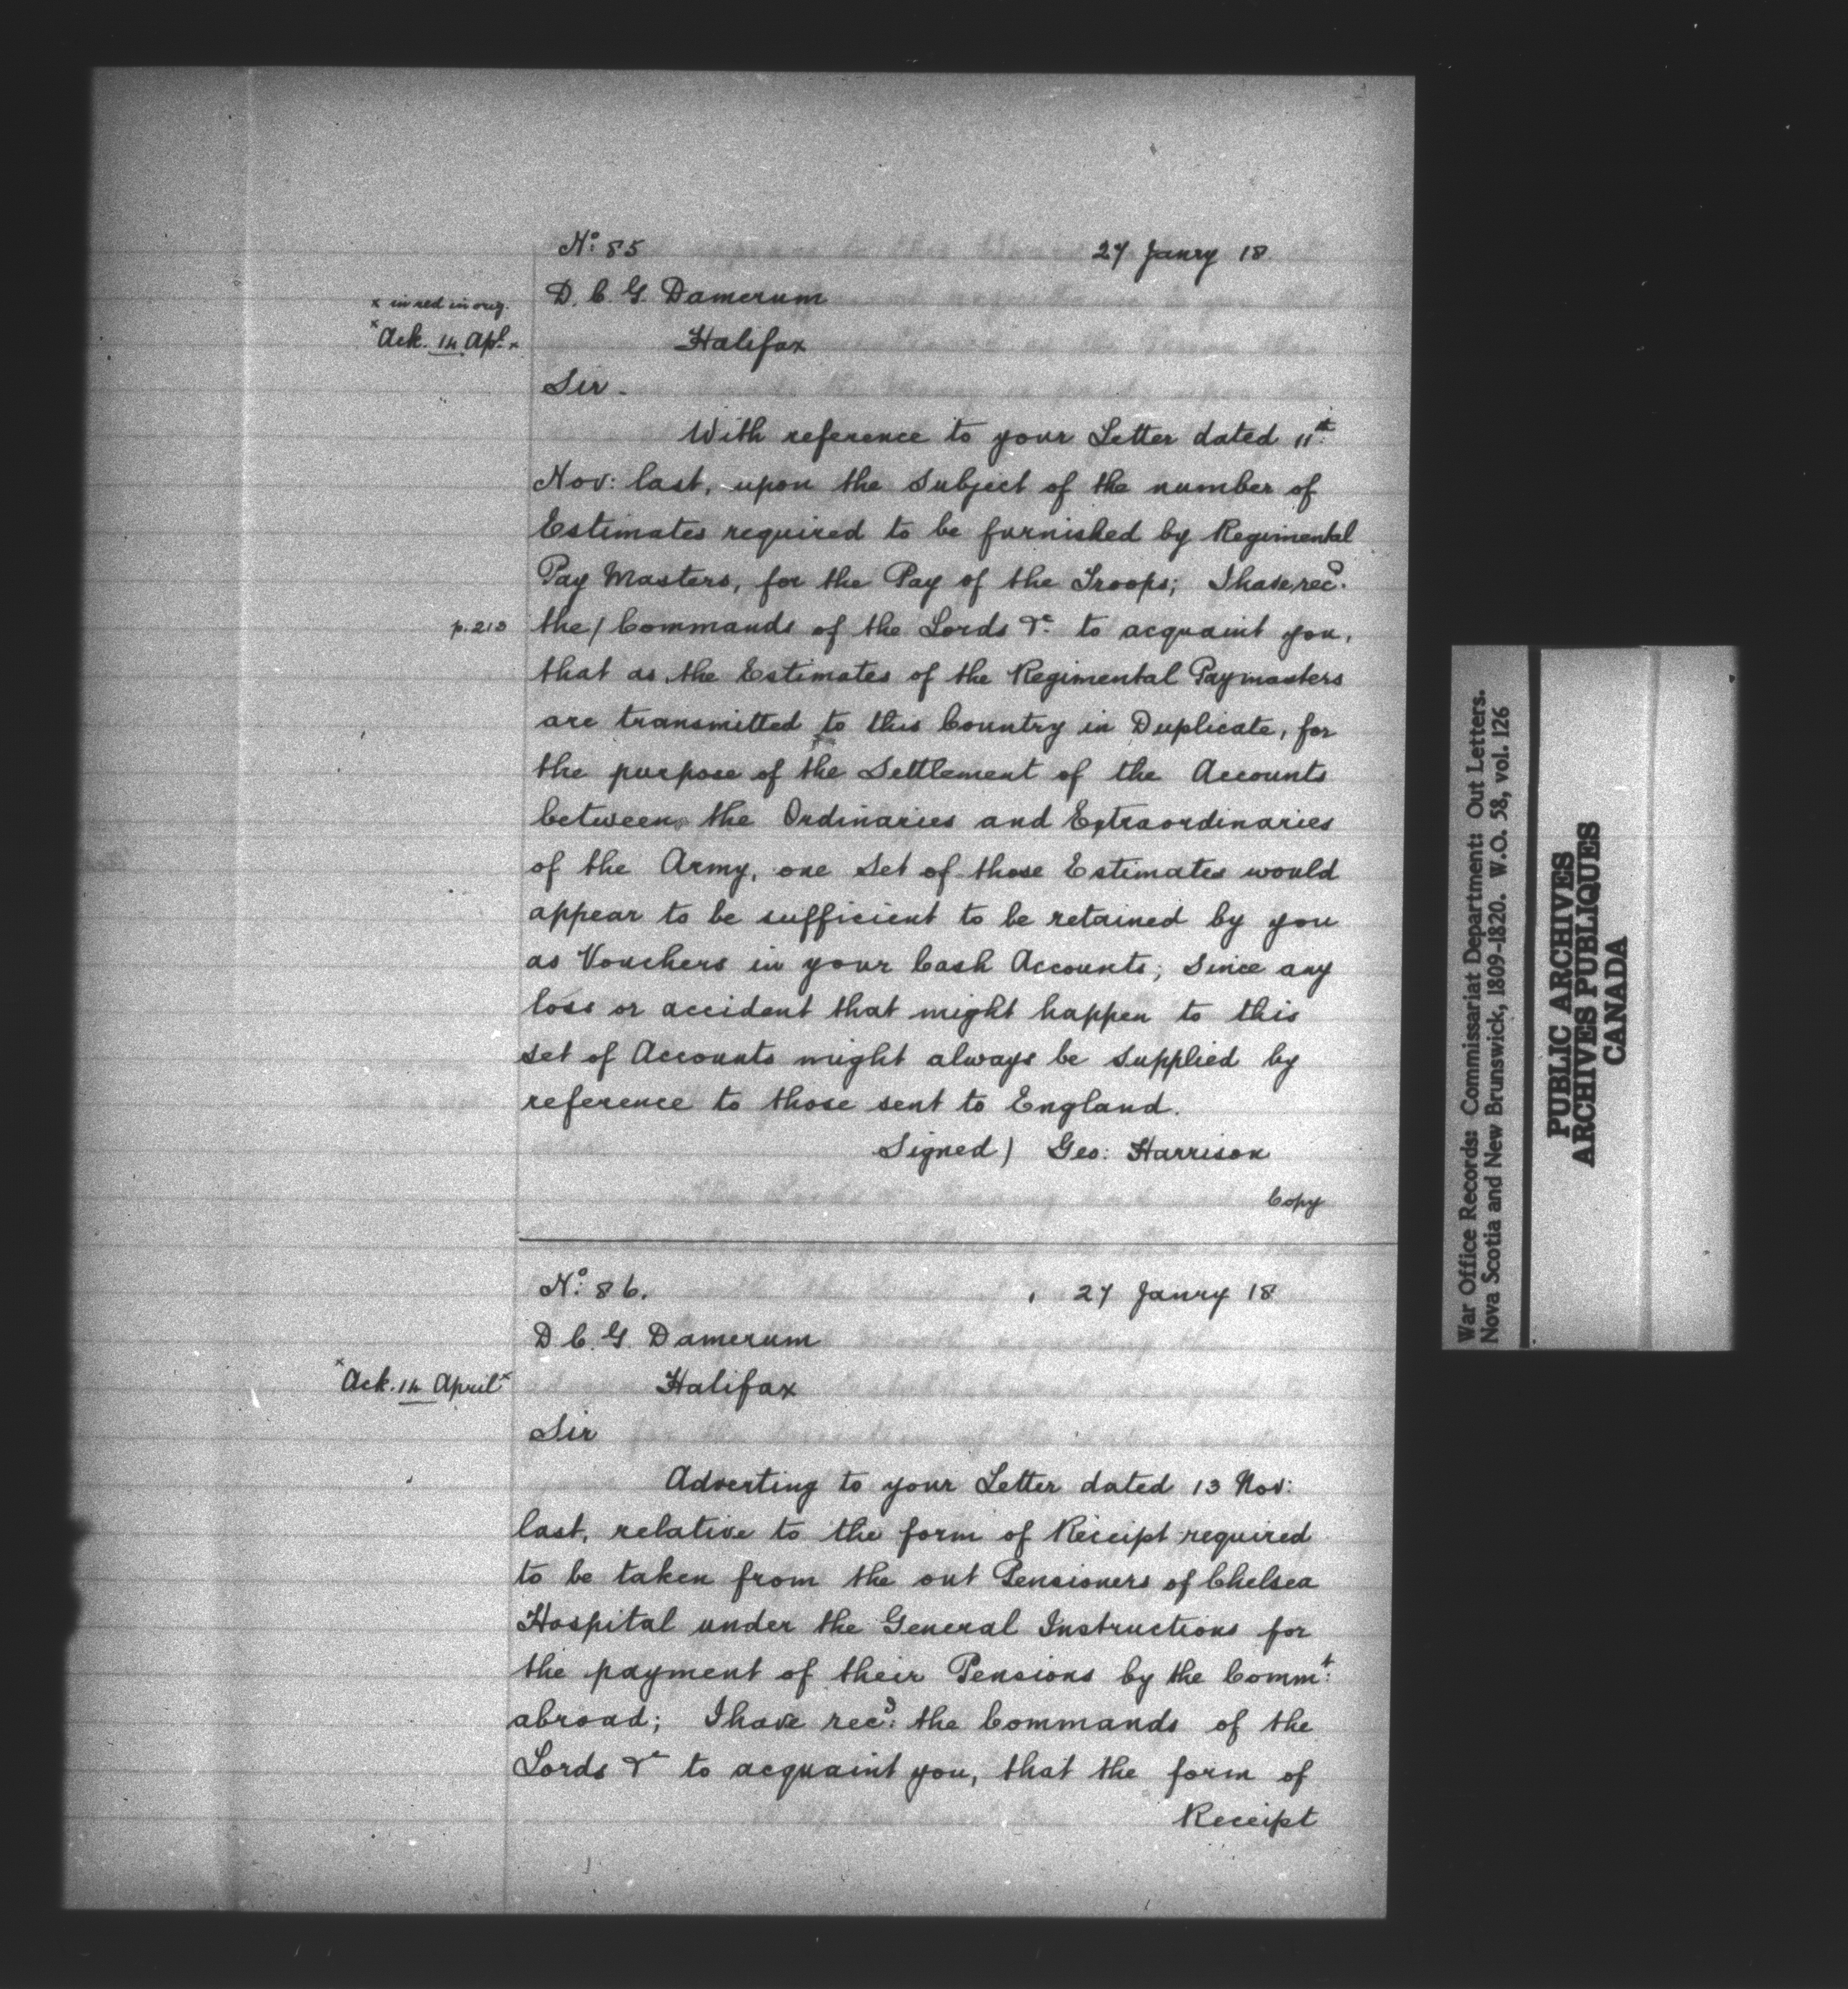 No: 85 27 Janry 18
x in red in orig.
D. C. G. Damerum
x Ack. 14 Apl. x
Halifax
Sir.
With reference to your Letter dated 11th:
Nov: last, upon the subject of the number of
Estimates required to be furnished by Regimental
Pay Masters, for the Pay of the Troops; I have recd.
p. 213
the / Commands of the Lords &c. to acquaint you,
that as the Estimates of the Regimental Paymasters
are transmitted to this Country in Duplicate, for
the purpose of the Settlement of the Accounts
between the Ordinaries and Extraordinaries
of the Army, one Set of those Estimates would
appear to be sufficient to be retained by you
as Vouchers in your Cash Accounts; Since any
loss or accident that might happen to this
set of Accounts might always be supplied by
reference to those sent to England.
Signed) Geo: Harrison
Copy
No: 86. 27 Janry 18
D C. G. Damerum
x Ack. 14 April x
Halifax
Sir
Adverting to your Letter dated 13 Nov:
last, relative to the form of Receipt required
to be taken from the out Pensioners of Chelsea
Hospital under the General Instructions for
the payment of their Pensions by the Commt:
abroad; I have recd: the Commands of the
Lords &c to acquaint you, that the form of
Receipt
War Office Records: Commissariat Department: Out Letters.
Nova Scotia and New Brunswick, 1809-1820. W.O. 58, vol. 126
PUBLIC ARCHIVES
ARCHIVES PUBLIQUES
CANADA